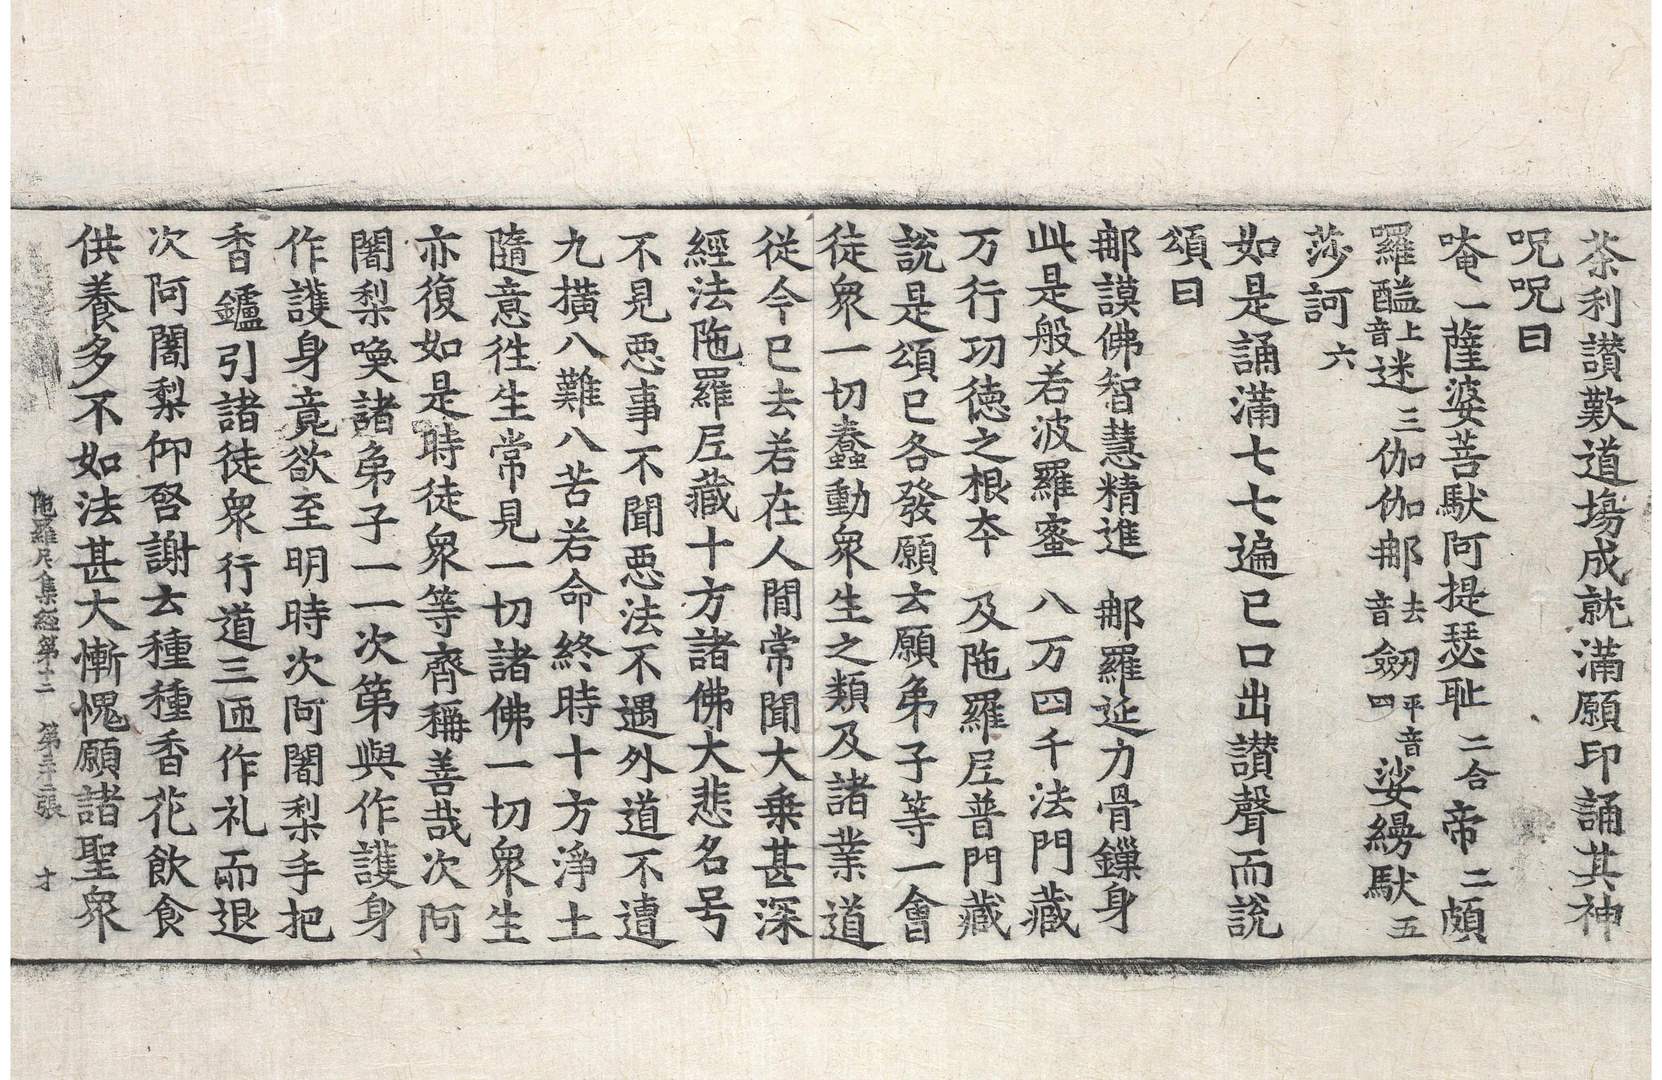 茶利讃歎道場成就滿願印誦其神
呪呪曰
唵一薩婆菩馱阿提瑟耻二合帝二頗
囉醯上音迷三伽伽那去音劒平音四娑縵馱五
莎訶六
如是誦滿七七遍已口出讃聲而說
頌曰
那謨佛智慧精進 那羅延力骨鏁身
此是般若波羅蜜 八万四千法門藏
万行功德之根夲 及陁羅尼普門藏
說是頌已各發願去願弟子等一會
徒衆一切蠢動衆生之類及諸業道
從今已去若在人間常聞大乗甚深
經法陁羅尼藏十方諸佛大悲名号
不見悪事不聞悪法不遇外道不遭
九橫八難八苦若命終時十方淨土
隨意徃生常見一切諸佛一切衆生
亦復如是時徒衆等齊稱善哉次阿
闍梨喚諸弟子一一次第與作護身
作護身竟欲至明時次阿闍梨手把
香鑪引諸徒衆行道三匝作礼而退
次阿闍梨仰啓謝去種種香花飲食
供養多不如法甚大慚愧願諸聖衆
陁羅尼集經第十二 第三十二張 才